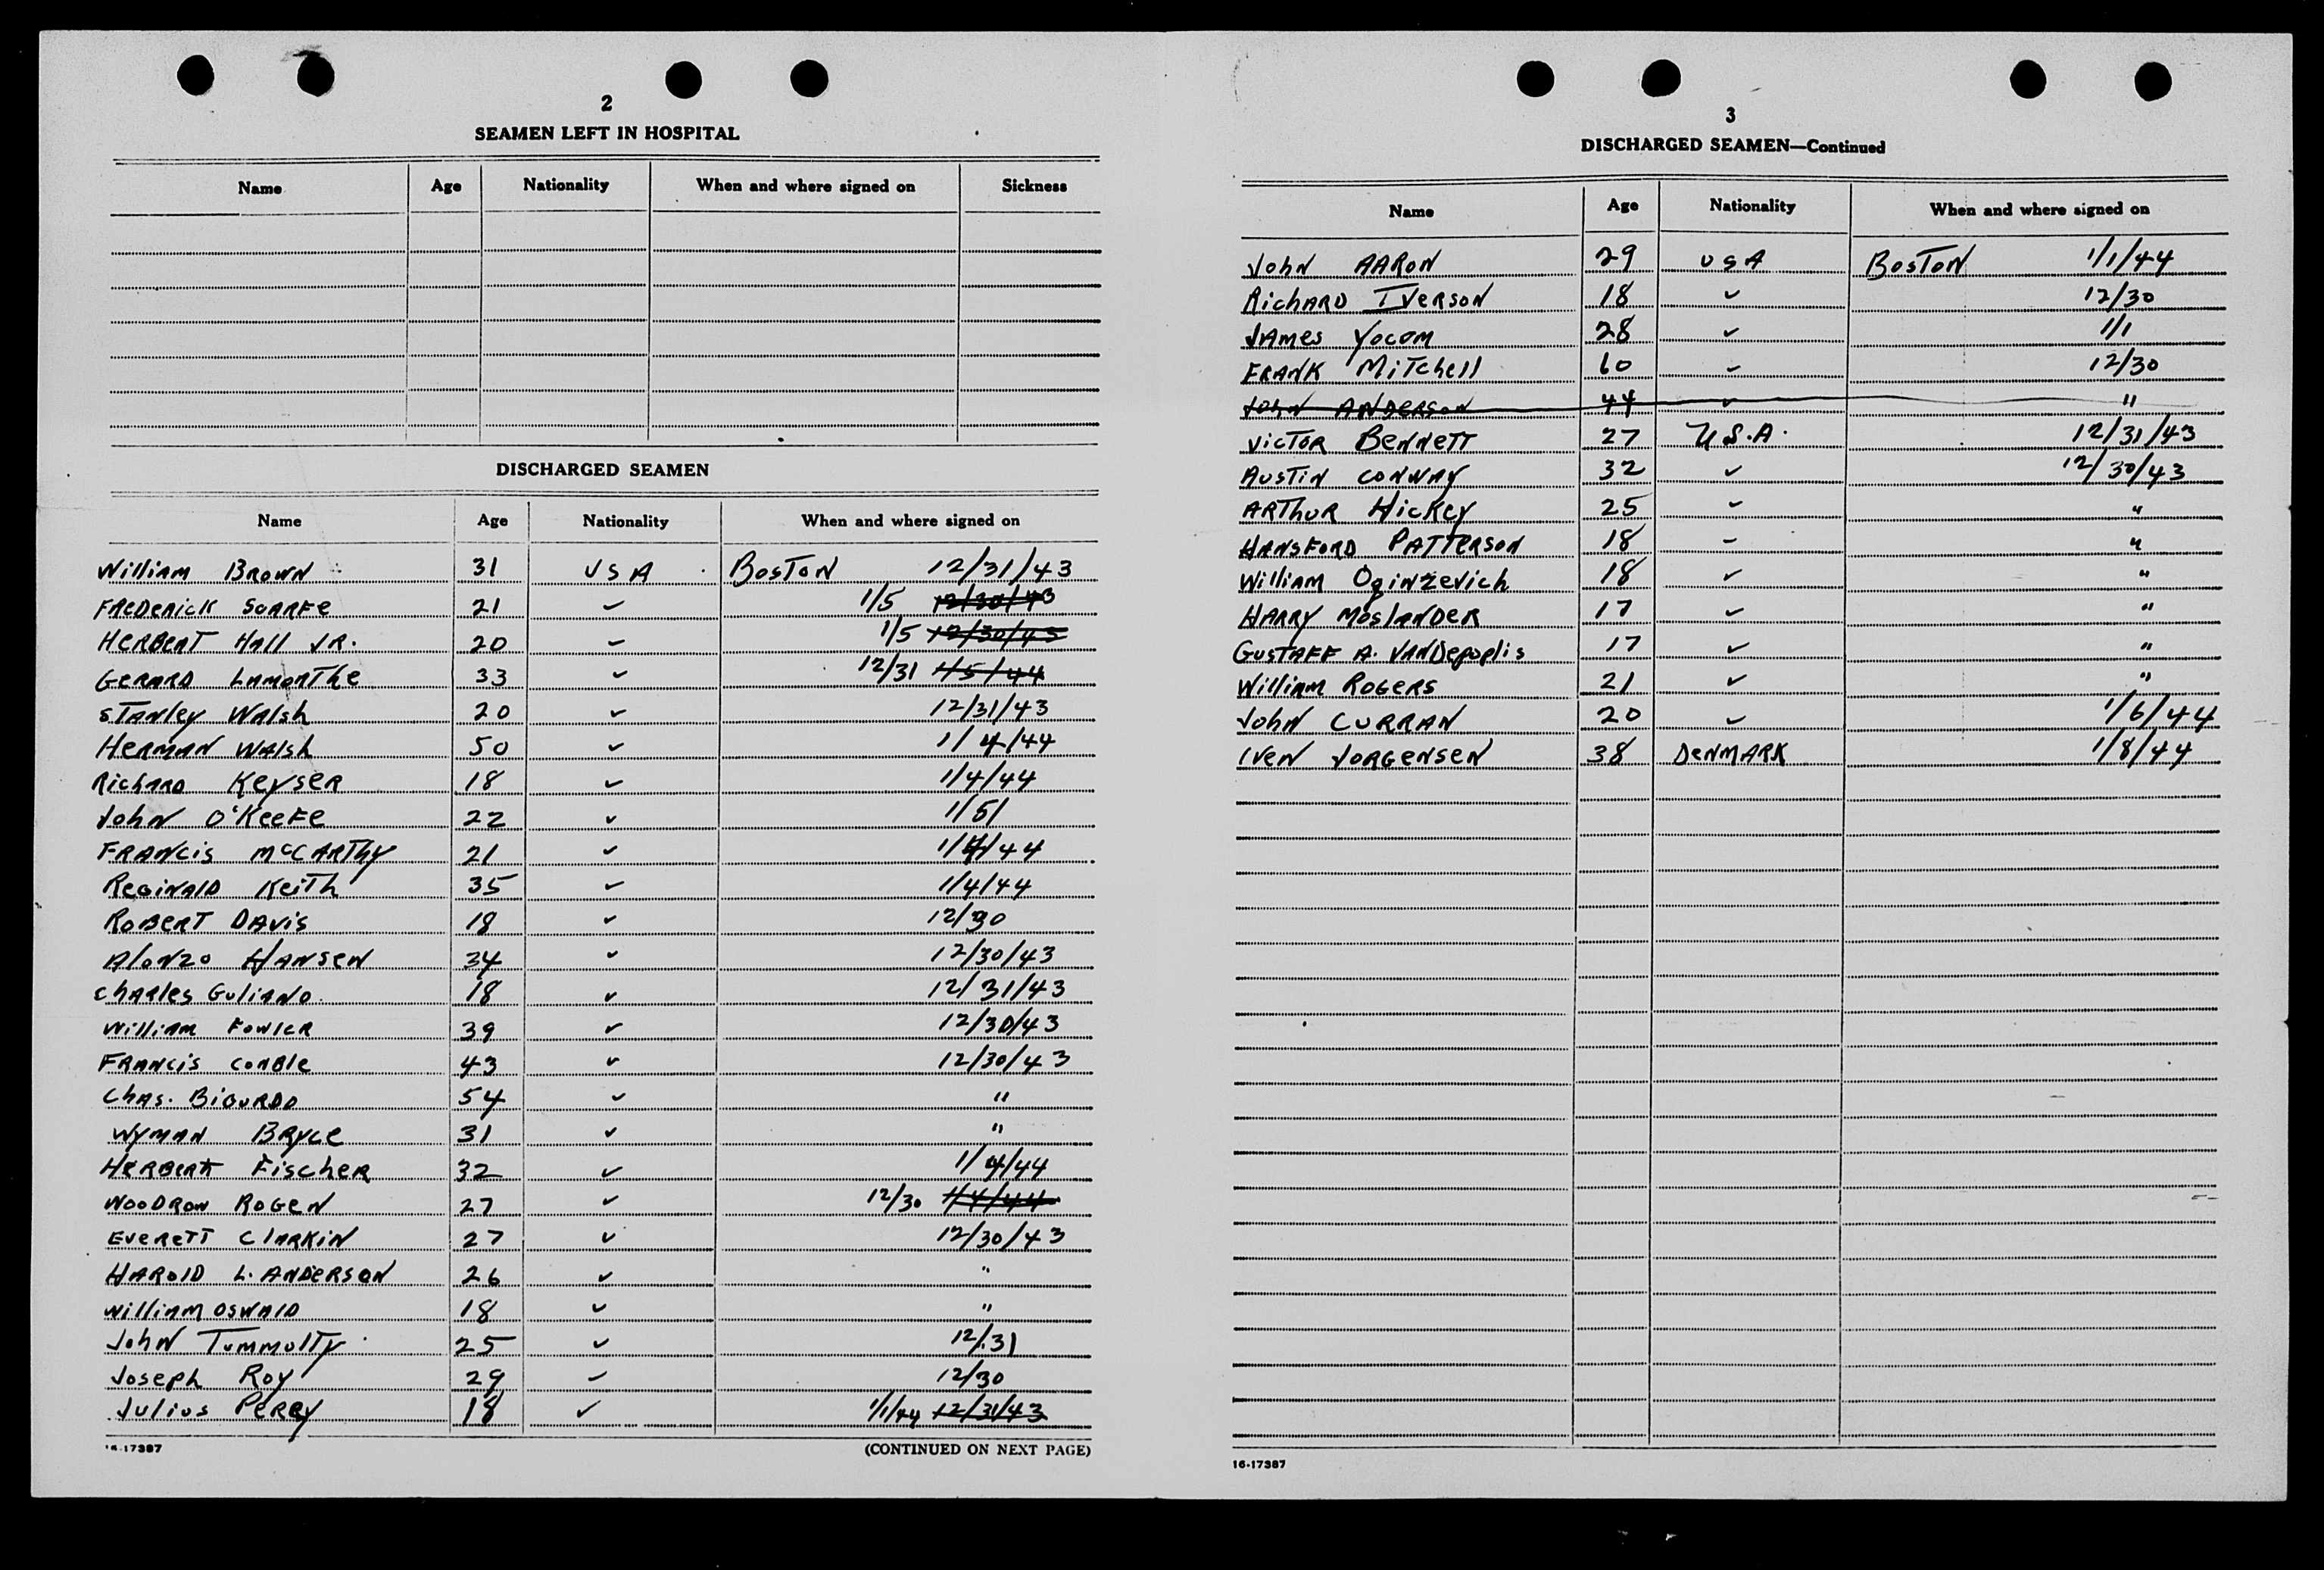 2
SEAMEN LEFT IN HOSPITAL
Name Age Nationality When and where signed on Sickness
DISCHARGED SEAMEN
Name Age Nationality When and where signed on
William BROWN 31 USA BOSTON 12/31/43
FREDERICK SCARFE 21 ✓ 1/5 12/30/43
HERBERT HAll JR. 20 ✓ 1/5 12/30/43
GERARD LAMONTHE 33 ✓ 12/31 1/5/44
STANley WAlsh 20 ✓ 12/31/43
HERMAN WAlsh 50 ✓ 1/4/44
RichARD KeySER 18 ✓ 1/4/44
John O'KeeFe 22 ✓ 1/5/
FRANCis McCARThy 21 ✓ 1/4/44
ReGiNAlD KeiTh 35 ✓ 1/4/44
ROBERT DAVis 18 ✓ 12/30
AlONZO HANSEN 34 ✓ 12/30/43
ChARles GuliANO 18 ✓ 12/31/43
William FOWlER 39 ✓ 12/30/43
FRANCis 43 ✓ 12/30/43
ChAS. 54 ✓ "
WYMAN BRYCE 31 ✓ "
HERBERT FischeR 32 ✓ 1/4/44
WOODROW ROGEN 27 ✓ 12/30 1/4/44
EVERETT ClARKiN 27 ✓ 12/30/43
HAROlD L. ANDERSON 26 ✓ "
William OSWAlD 18 ✓ "
John TummulTy 25 ✓ 12/31
Joseph Roy 29 ✓ 12/30
Julius PERRy 18 ✓ 1/1/44 12/31/43
16-17387 (CONTINUED ON NEXT PAGE)
3
DISCHARGED SEAMEN—Continued
Name Age Nationality When and where signed on
John AARON 29 USA BOSTON 1/1/44
RichARD IVERSON 18 ✓ 12/30
JAMes YOCOM 28 ✓ 1/1
FRANK MiTchell 60 ✓ 12/30
John ANDERSON 44 ✓ "
VicTOR BeNNeTT 27 U.S.A. 12/31/43
AUSTiN CONWAY 32 ✓ 12/30/43
ARThuR HicKey 25 ✓ "
HANSFORD PATTERSON 18 ✓ "
William OginzeVich 18 ✓ "
HARRY MOSlANDER 17 ✓ "
GUSTAFF A. 17 ✓ "
William ROGERS 21 ✓ "
John CURRAN 20 ✓ 1/6/44
IVEN JORGENSEN 38 DENMARK 1/8/44
16-17387